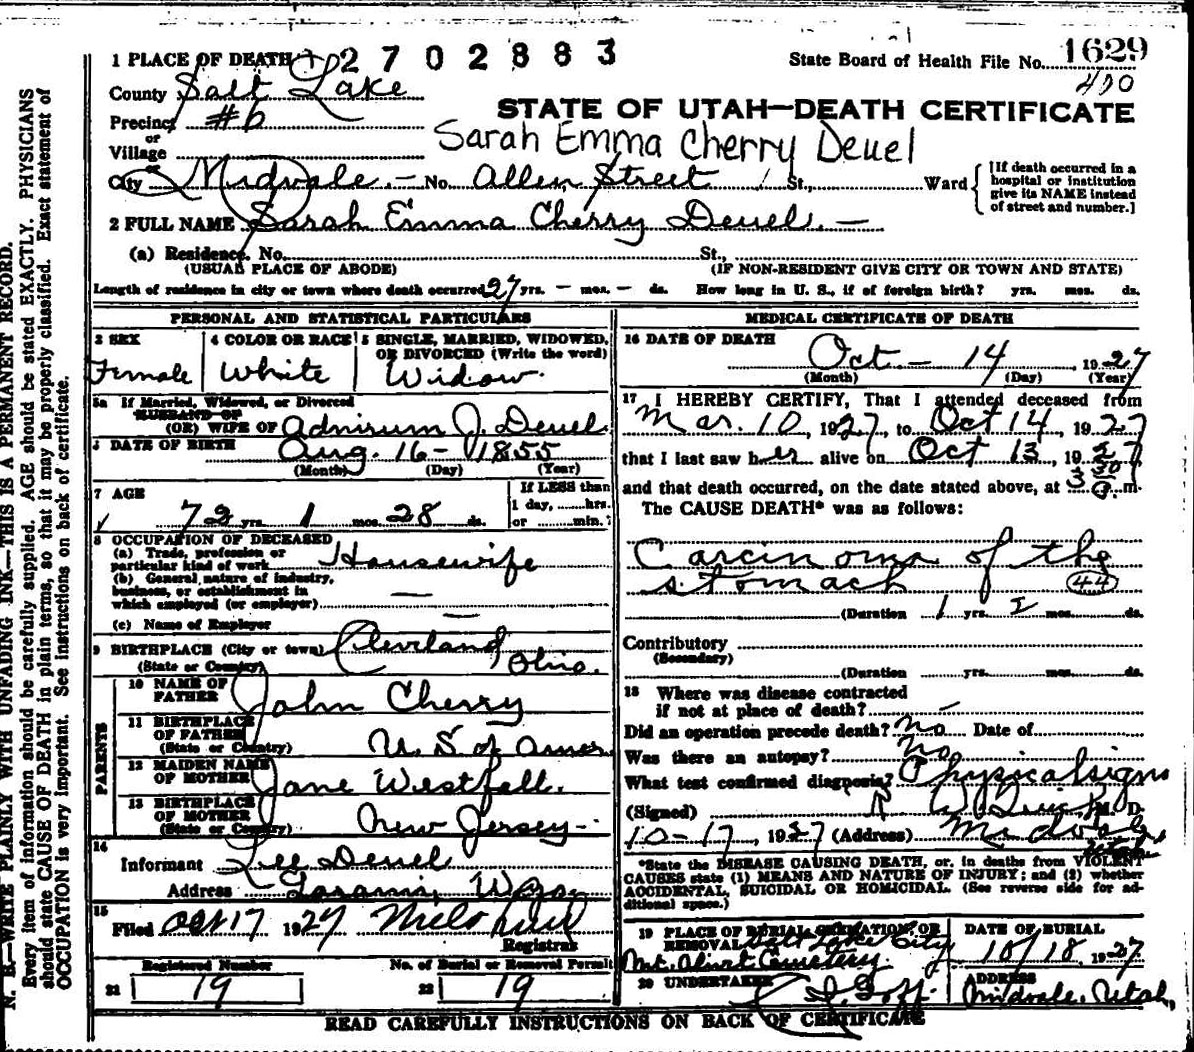 N. B.—WRITE PLAINLY WITH UNFADING INK—THIS IS A PERMANENT RECORD.
Every item of information should be carefully supplied. AGE should be stated EXACTLY. PHYSICIANS
should state CAUSE OF DEATH in plain terms, so that it may be properly classified. Exact statement of
OCCUPATION is very important. See instructions on back of certificate.
1 PLACE OF DEATH 2702883
State Board of Health File No. 1629
400
County Salt Lake
STATE OF UTAH—DEATH CERTIFICATE
Precinct #6
or
Village
Sarah Emma Cherry Deuel
or
City Midvale.— No. Allen Street St., Ward
[If death occurred in a
hospital or institution
give its NAME instead
of street and number.]
2 FULL NAME Sarah Emma Cherry Deuel.—
(a) Residence. No. St.,
(USUAL PLACE OF ABODE) (IF NON-RESIDENT GIVE CITY OR TOWN AND STATE)
Length of residence in city or town where death occurred 27 yrs. — mos. — ds. How long in U. S., if of foreign birth? yrs. mos. ds.
PERSONAL AND STATISTICAL PARTICULARS
3 SEX
Female
4 COLOR OR RACE
White
5 SINGLE, MARRIED, WIDOWED,
OR DIVORCED (Write the word)
Widow.
5a If Married, Widowed, or Divorced
HUSBAND OF
(OR) WIFE OF Adnirum J. Deuel
6 DATE OF BIRTH Aug. 16 — 1855
(Month) (Day) (Year)
7 AGE
72 yrs. 1 mos. 28 ds.
If LESS than
1 day, hrs.
or min.
8 OCCUPATION OF DECEASED
(a) Trade, profession or
particular kind of work Housewife
(b) General nature of industry,
business, or establishment in
which employed (or employer) —
(c) Name of Employer —
9 BIRTHPLACE (City or town) Cleveland
(State or Country) Ohio.
PARENTS
10 NAME OF
FATHER John Cherry
11 BIRTHPLACE
OF FATHER
(State or Country) U. S. of Amer.
12 MAIDEN NAME
OF MOTHER Jane Westfall.
13 BIRTHPLACE
OF MOTHER
(State or Country) New Jersey —
14
Informant Lee Deuel
Address
15
Filed Oct 17 1927
Registrar
Registered Number
21 19
No. of Burial or Removal Permit
22 19
MEDICAL CERTIFICATE OF DEATH
16 DATE OF DEATH
Oct — 14 1927
(Month) (Day) (Year)
17 I HEREBY CERTIFY, That I attended deceased from
Mar. 10, 1927, to Oct 14, 1927
that I last saw her alive on Oct 13, 1927
and that death occurred, on the date stated above, at 3 30 m.
The CAUSE DEATH* was as follows:
Carcinoma of the
stomach (44)
(Duration 1 yrs. 2 mos. ds.
Contributory
(Secondary)
(Duration yrs. mos. ds.
18 Where was disease contracted
if not at place of death? —
Did an operation precede death? no Date of
Was there an autopsy? no
What test confirmed diagnosis? Physical signs
(Signed) M. D.
10-17, 1927 (Address) Midvale, Utah
*State the DISEASE CAUSING DEATH, or, in deaths from VIOLENT
CAUSES state (1) MEANS AND NATURE OF INJURY; and (2) whether
ACCIDENTAL, SUICIDAL OR HOMICIDAL. (See reverse side for ad-
ditional space.)
19 PLACE OF BURIAL, CREMATION, OR
REMOVAL Salt Lake City
Mt. Olivet Cemetery.
DATE OF BURIAL
10/18 1927
20 UNDERTAKER Goff.
ADDRESS
Midvale, Utah,
READ CAREFULLY INSTRUCTIONS ON BACK OF CERTIFICATE